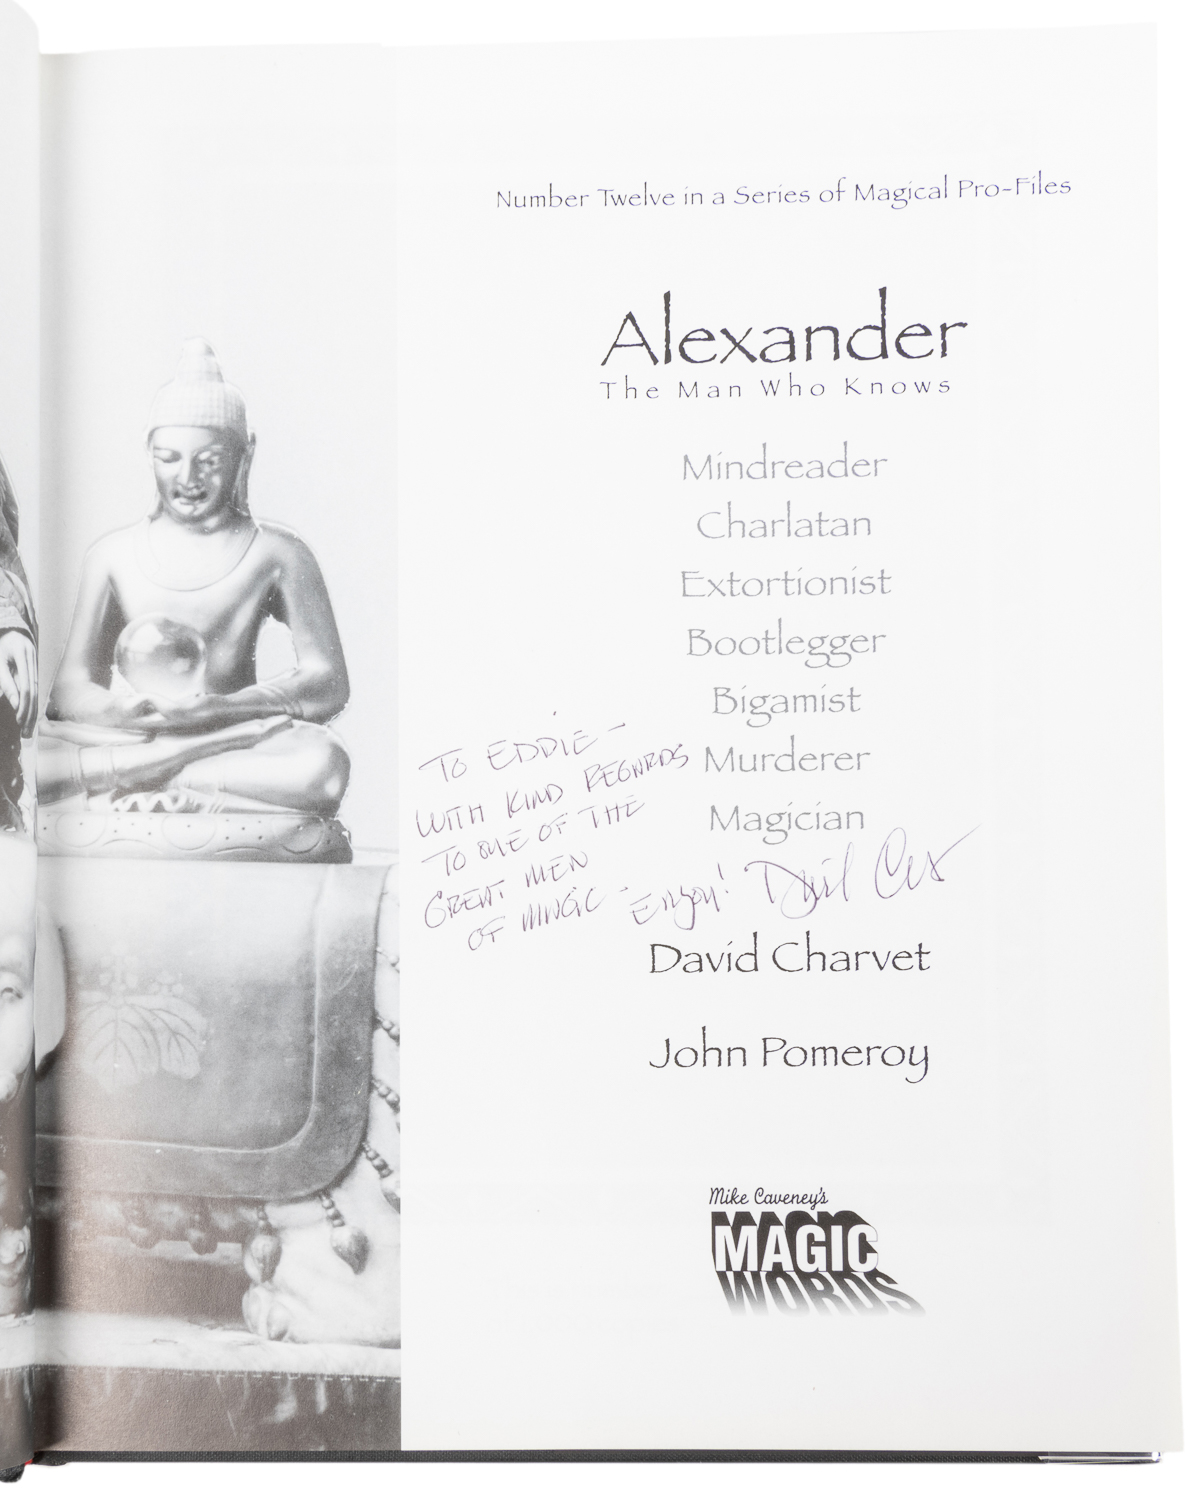 Number Twelve in a Series of Magical Pro-Files
Alexander
The Man Who Knows
Mindreader
Charlatan
Extortionist
Bootlegger
Bigamist
Murderer
Magician
TO EDDIE –
WITH KIND REGARDS
TO ONE OF THE
GREAT MEN
OF MAGIC –
Enjoy!
David Charvet
John Pomeroy
Mike Caveney's
MAGIC
WORDS